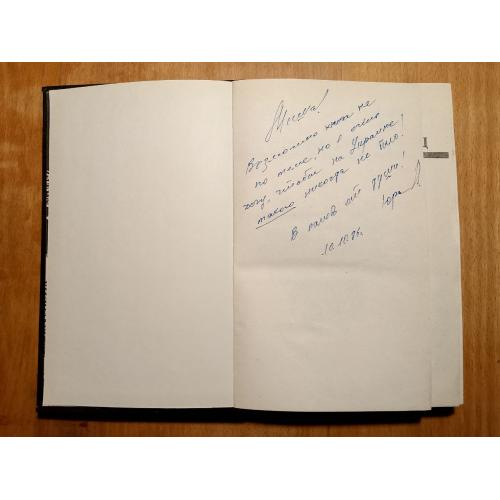 Миша!
Возможно книга не
по теме, но я очень
хочу, чтобы на Украине
такого никогда не было!
В память от души!
Юра
10.10.96.
1